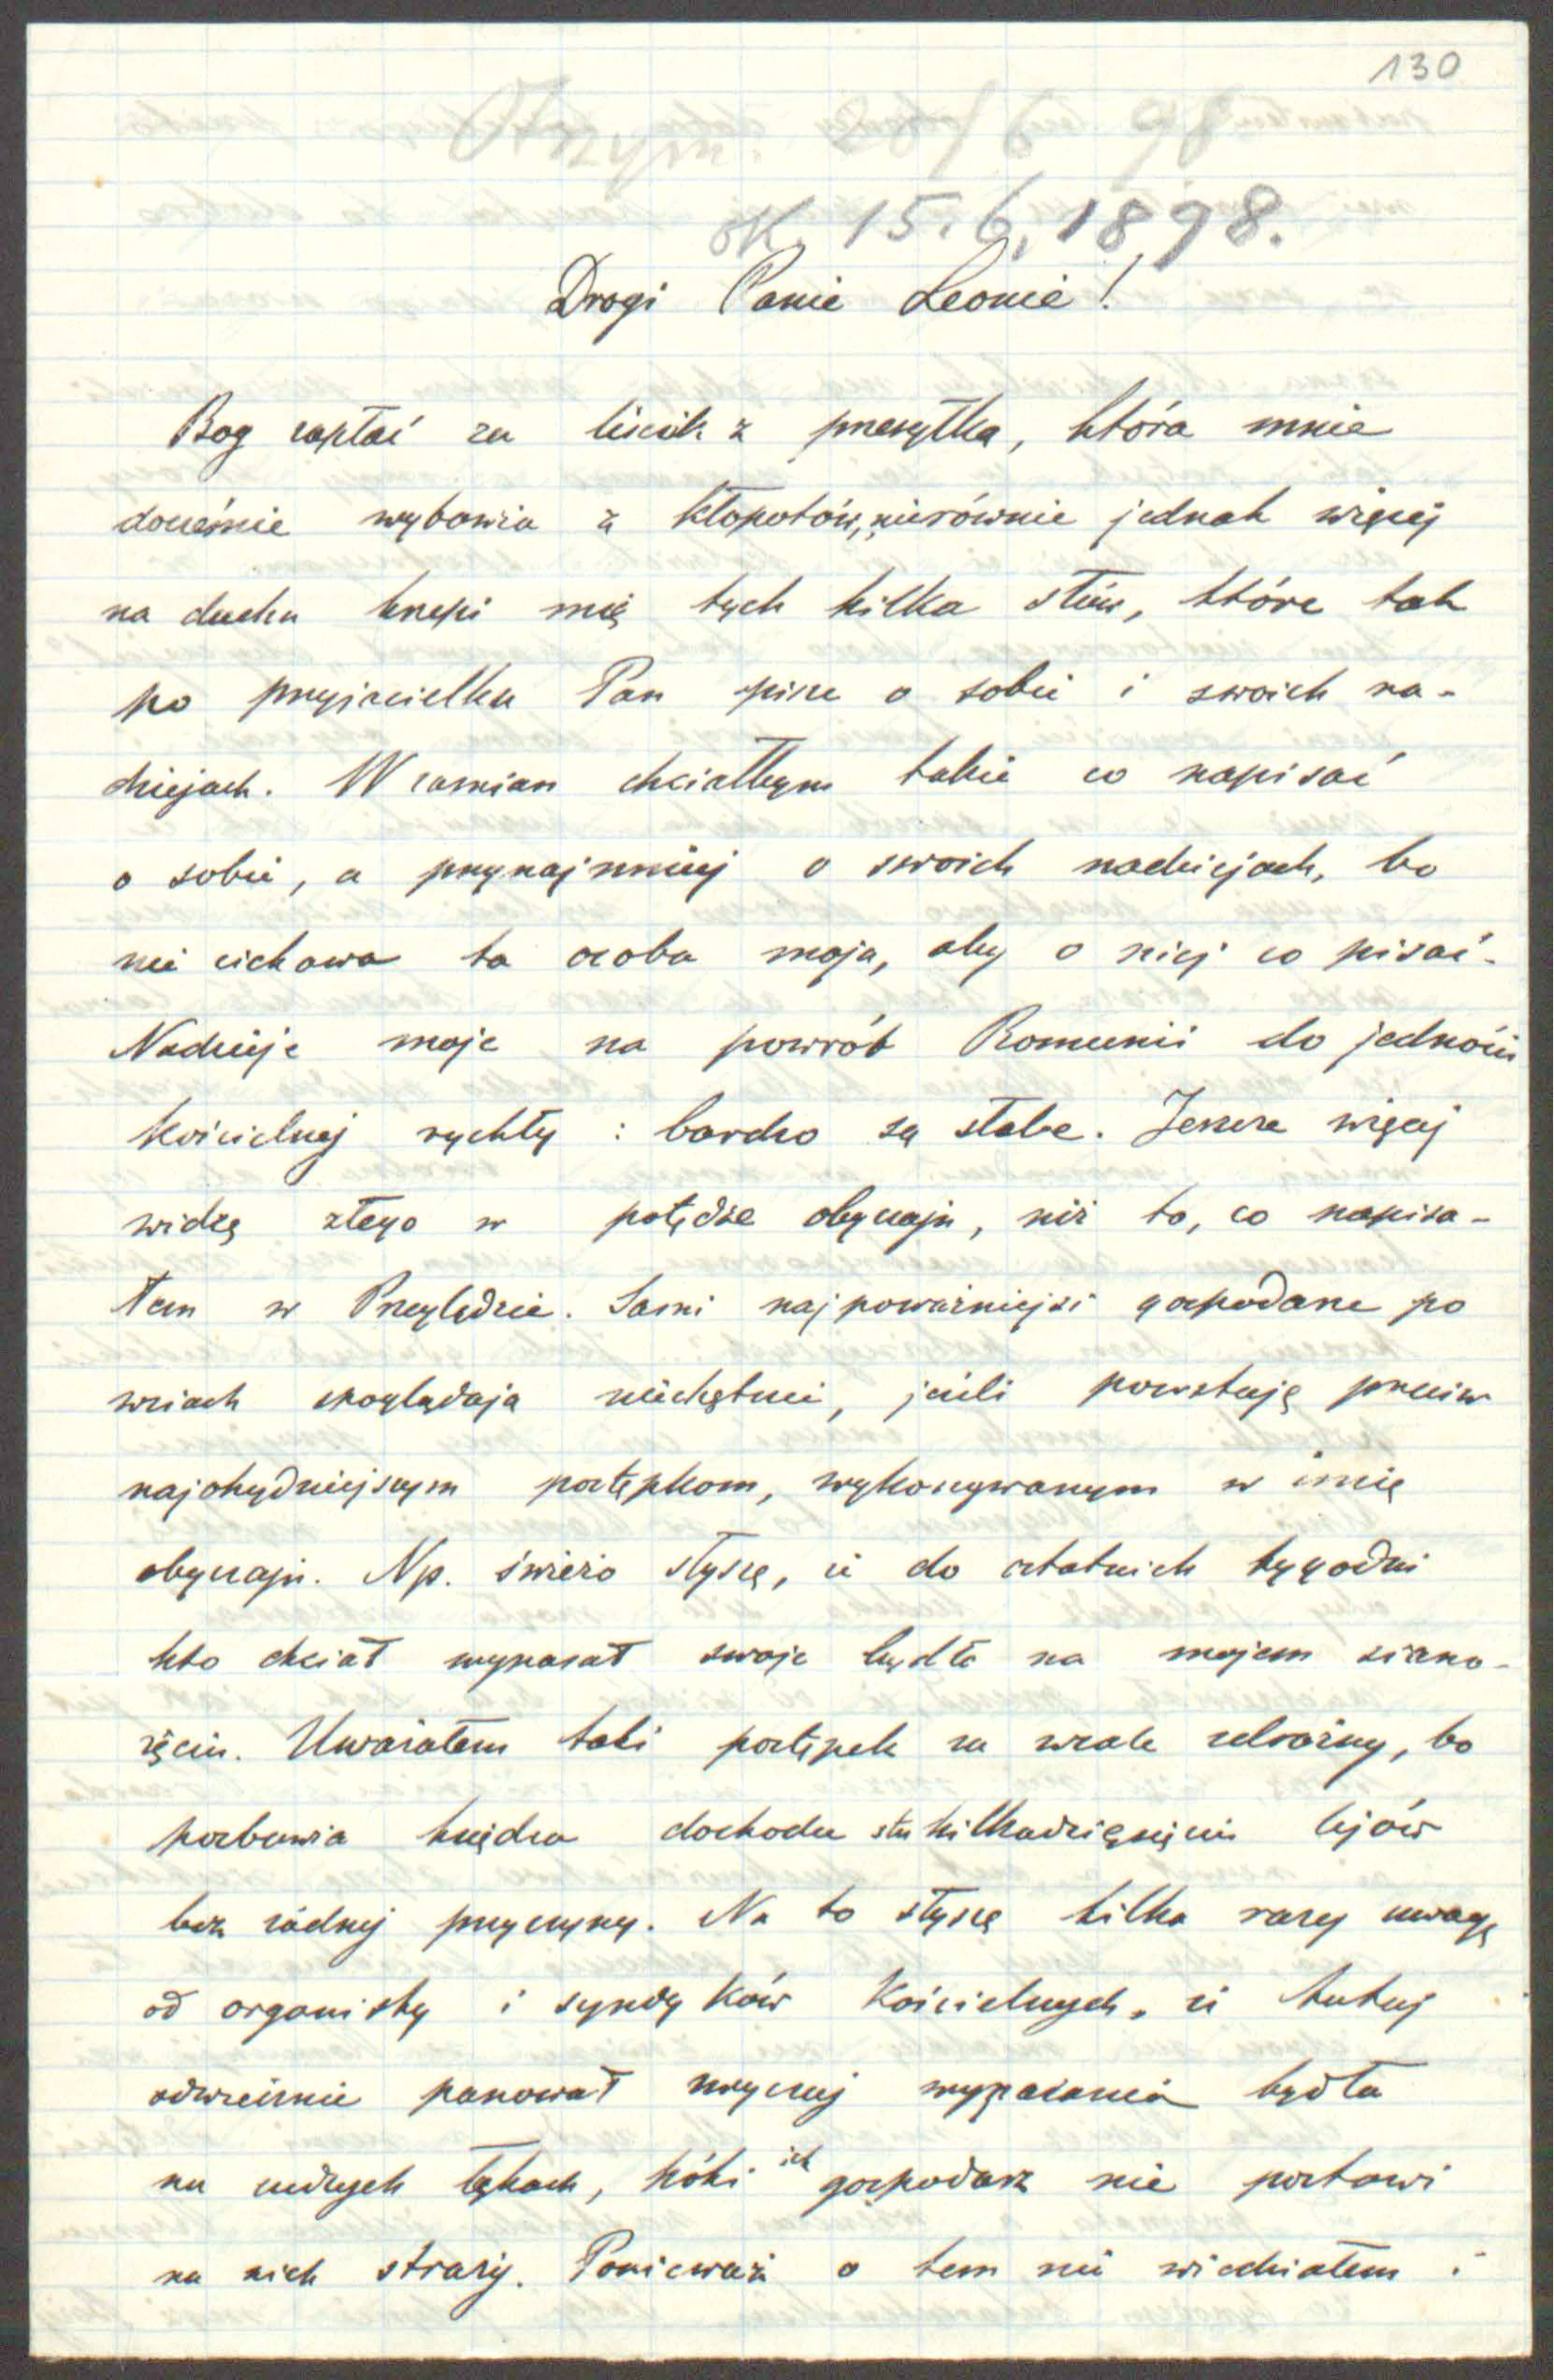 130
Otrzym. 20/6 98
ok. 15.6.1898.
Drogi Panie Leonie!
Bog zapłać za liścik z przesyłką, która mnie
docześnie wybawia z kłopotów, nierównie jednak więcej
na duchu krzepi mię tych kilka słów, które tak
po przyjacielsku Pan pisze o sobie i swoich na-
dziejach. W zamian chciałbym także co napisać
o sobie, a przynajmniej o swoich nadziejach, bo
nie ciekawa ta osoba moja, aby o niej co pisać.
Nadzieje moje na powrót Romunii do jedności
Kościelnej rychły : bardzo są słabe. Jeszcze więcej
widzę złego w potędze obyczaju, niż to, co napisa-
łem w Przeglądzie. Sami najpoważniejsi gospodarze po
wsiach spoglądają niechętnie, jeśli powstaję przeciw
najohydniejszym postępkom, wykonywanym w imię
obyczaju. Np. świeżo słyszę, iż do ostatnich tygodni
kto chciał wypasał swoje bydło na mojem siano-
żęciu. Uważałem taki postępek za wcale zdrożny, bo
pozbawia księdza dochodu stu kilkadziesięciu lejów
bez żadnej przyczyny. Na to słyszę kilka razy uwagę
od organisty i syndyków Kościelnych, iż tutaj
odwiecznie panował zwyczaj wypasania bydła
na cudzych łąkach, póki ich gospodarz nie postawi
na nich straży. Ponieważ o tem nie wiedziałem i